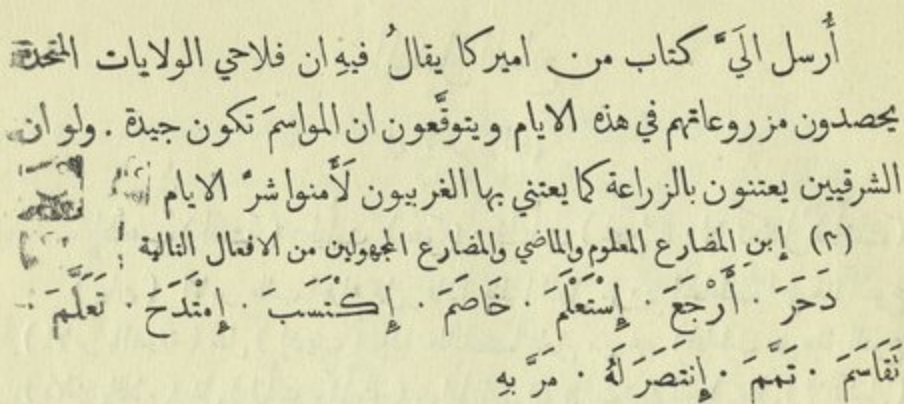 أُرسل اليَّ كتاب من اميركا يقالُ فيهِ ان فلاحي الولايات المتحدة
يحصدون مزروعاتهم في هذه الايام ويتوقَّعون ان المواسمَ تكون جيدة . ولو ان
الشرقيين يعتنون بالزراعة كما يعتني بها الغربيون لَأَمنوا شرَّ الايام
(٢) إِبنِ المضارع المعلوم والماضي والمضارع المجهولين من الافعال التالية :
دَحَرَ · أَرْجَعَ · إِسْتَعْلَمَ · خَاصَمَ · إِكْتَسَبَ · إِمْتَدَحَ · تَعَلَّمَ ·
تَقَاسَمَ · تَمَّمَ · إِنتصَرَ لَهُ · مَرَّ بِهِ